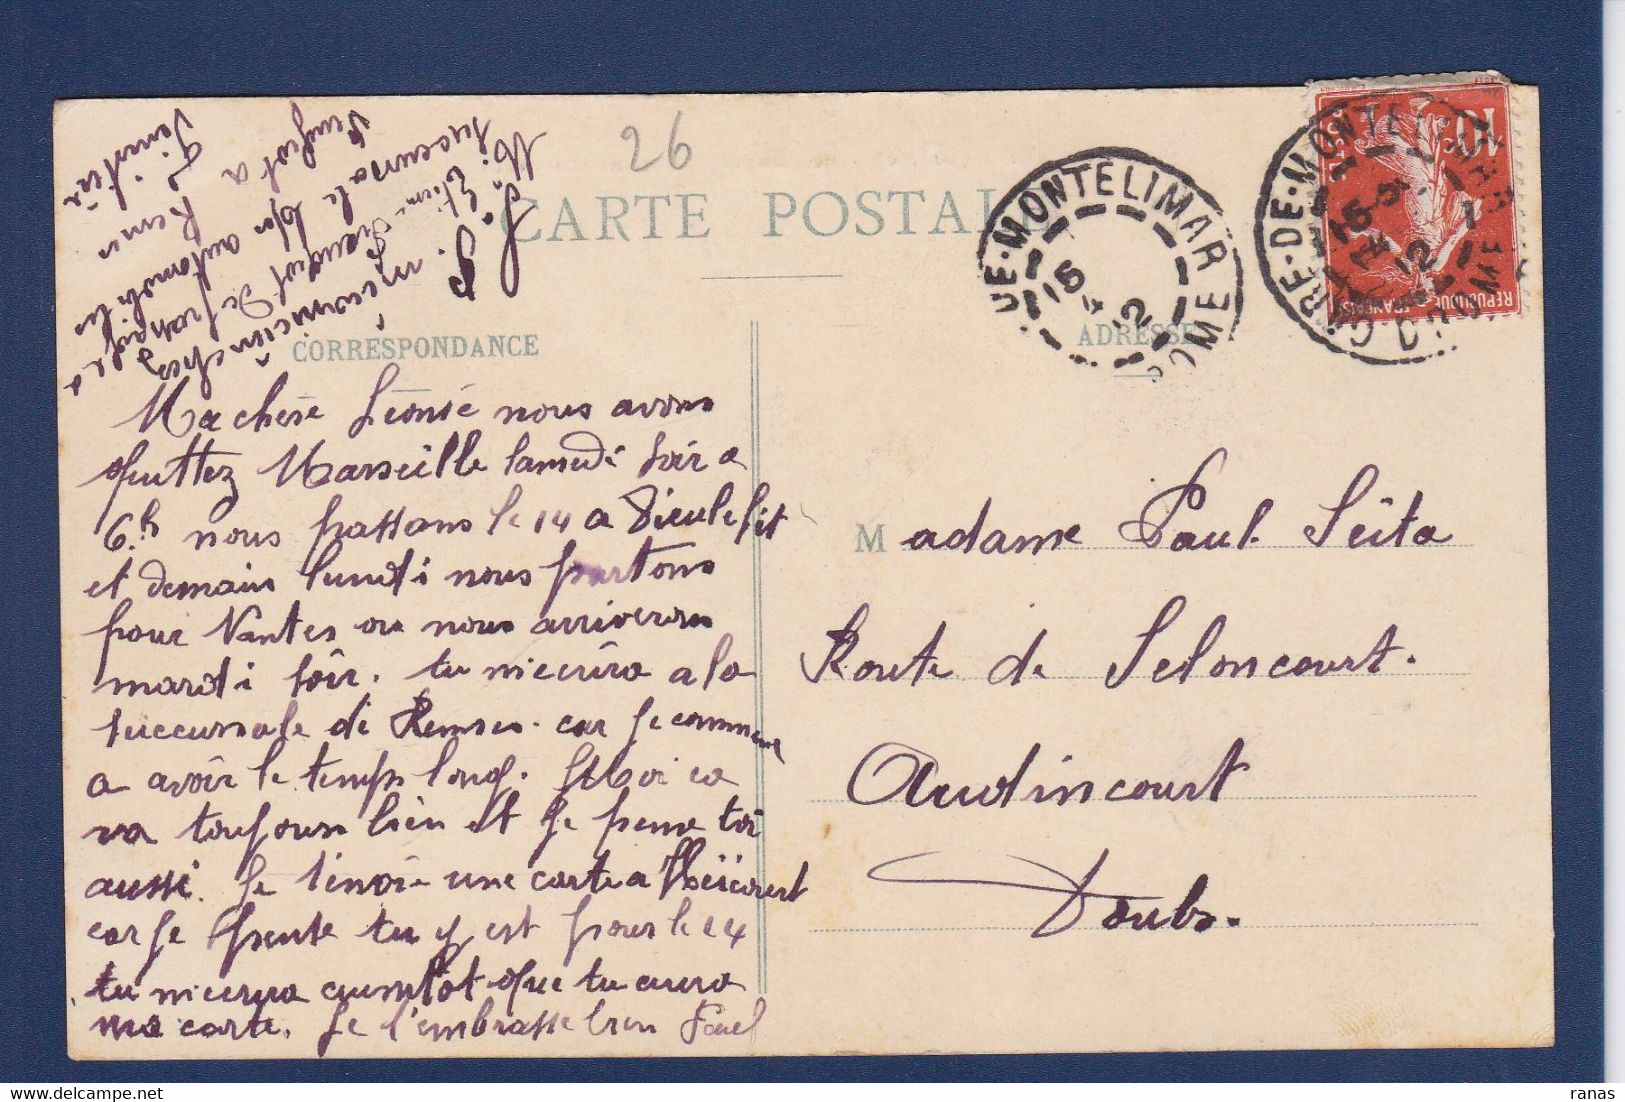 26
CARTE POSTALE
CORRESPONDANCE
ADRESSE
GARE-DE-MONTELIMAR
DROME
15
12
10
REPUBLIQUE FRANÇAISE
Ma chère Léonie nous avons
quittez Marseille samedi soir a
6h nous passons le 14 a Dieulefit
et demain lundi nous partons
pour Nantes ou nous arriverons
mardi soir. tu m'ecrira a la
succursale de Rennes. car je commence
a avoir le temps long. Moi ca
va toujours bien et je pense toi
aussi. Je t'envoie une carte a Héricourt
car je pense tu y est pour le 14
tu m'ecrira aussitot que tu aura
ma carte. Je t'embrasse bien Paul
P.
mécanicien chez
Peugeot
succursale automobiles
Peugeot a Rennes
Madame Paul Seita
Route de Seloncourt.
Audincourt
Doubs.
ranas